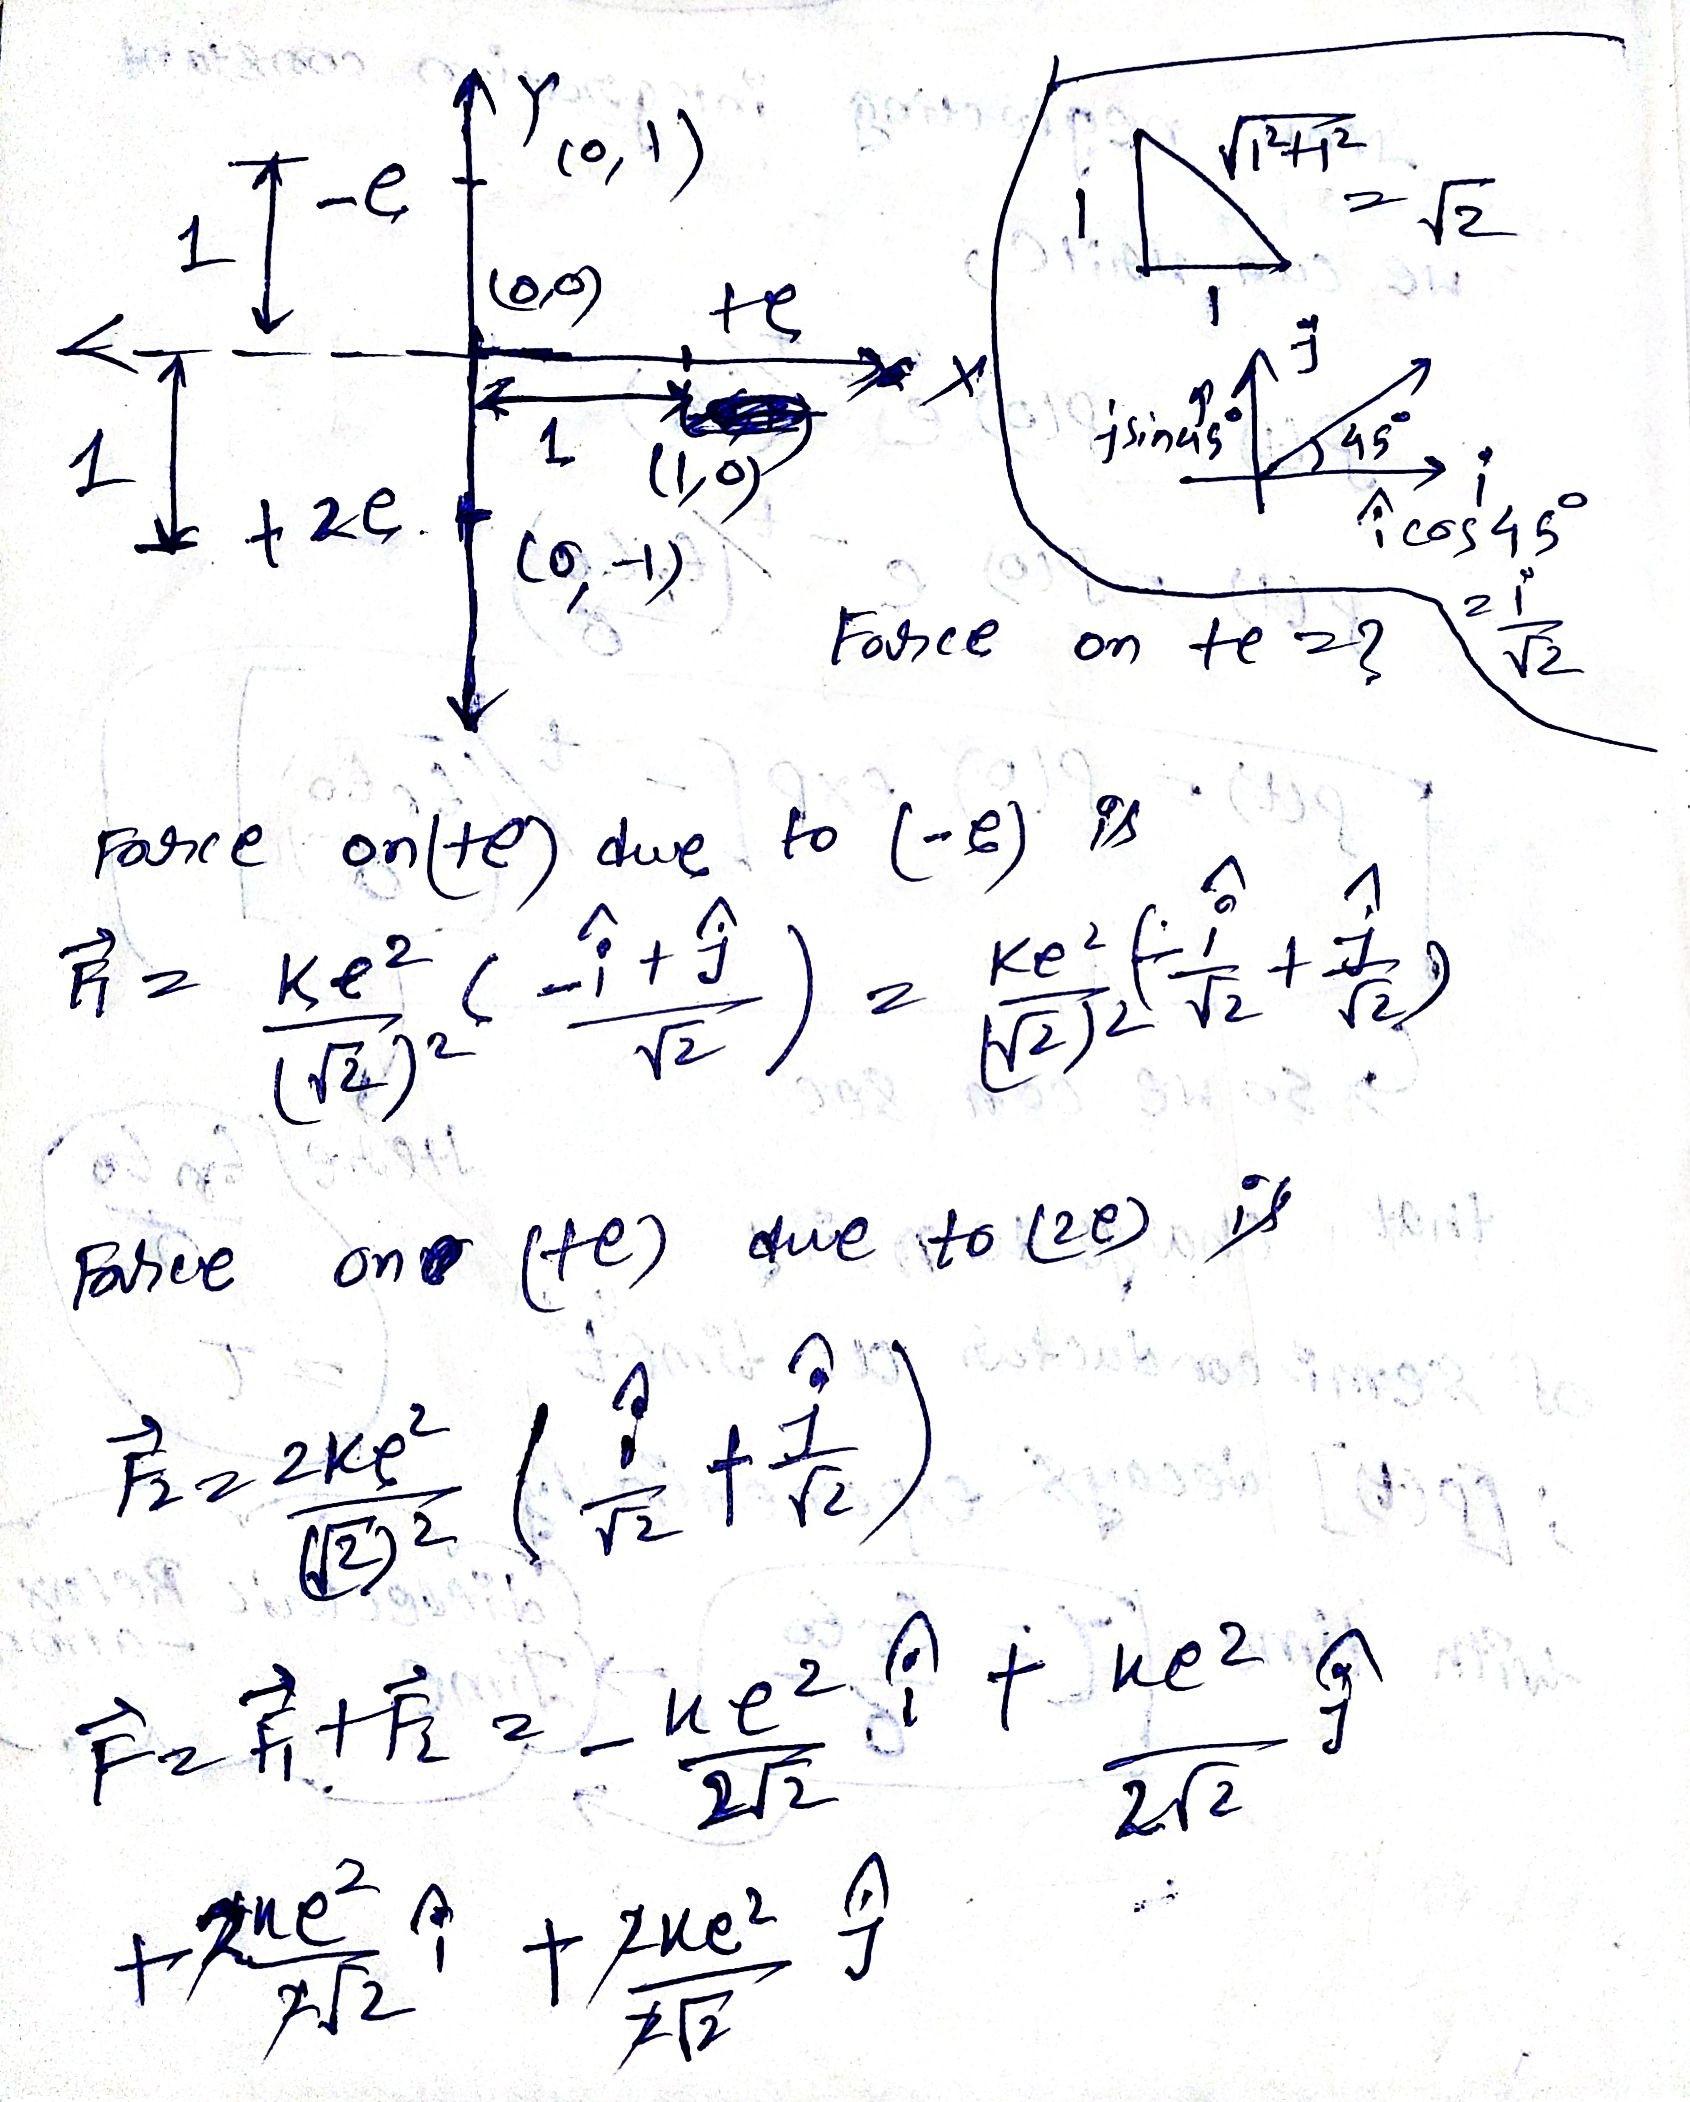 Y
(0, 1)
-e
1
(0,0)
+e
X
1
1
(1,0)
+2e
(0, -1)
√1²+1²
= √2
1
1
j
j sin45°
45°
i
î cos45°
= i/√2
Force on +e = ?
Force on (+e) due to (-e) is
F⃗₁ = Ke²/(√2)² (-î + ĵ/√2) = Ke²/(√2)² (-î/√2 + ĵ/√2)
Force on (+e) due to (2e) is
F⃗₂ = 2Ke²/(√2)² (î/√2 + ĵ/√2)
F⃗ = F⃗₁ + F⃗₂ = - Ke²/2√2 î + Ke²/2√2 ĵ
+ 2Ke²/2√2 î + 2Ke²/2√2 ĵ